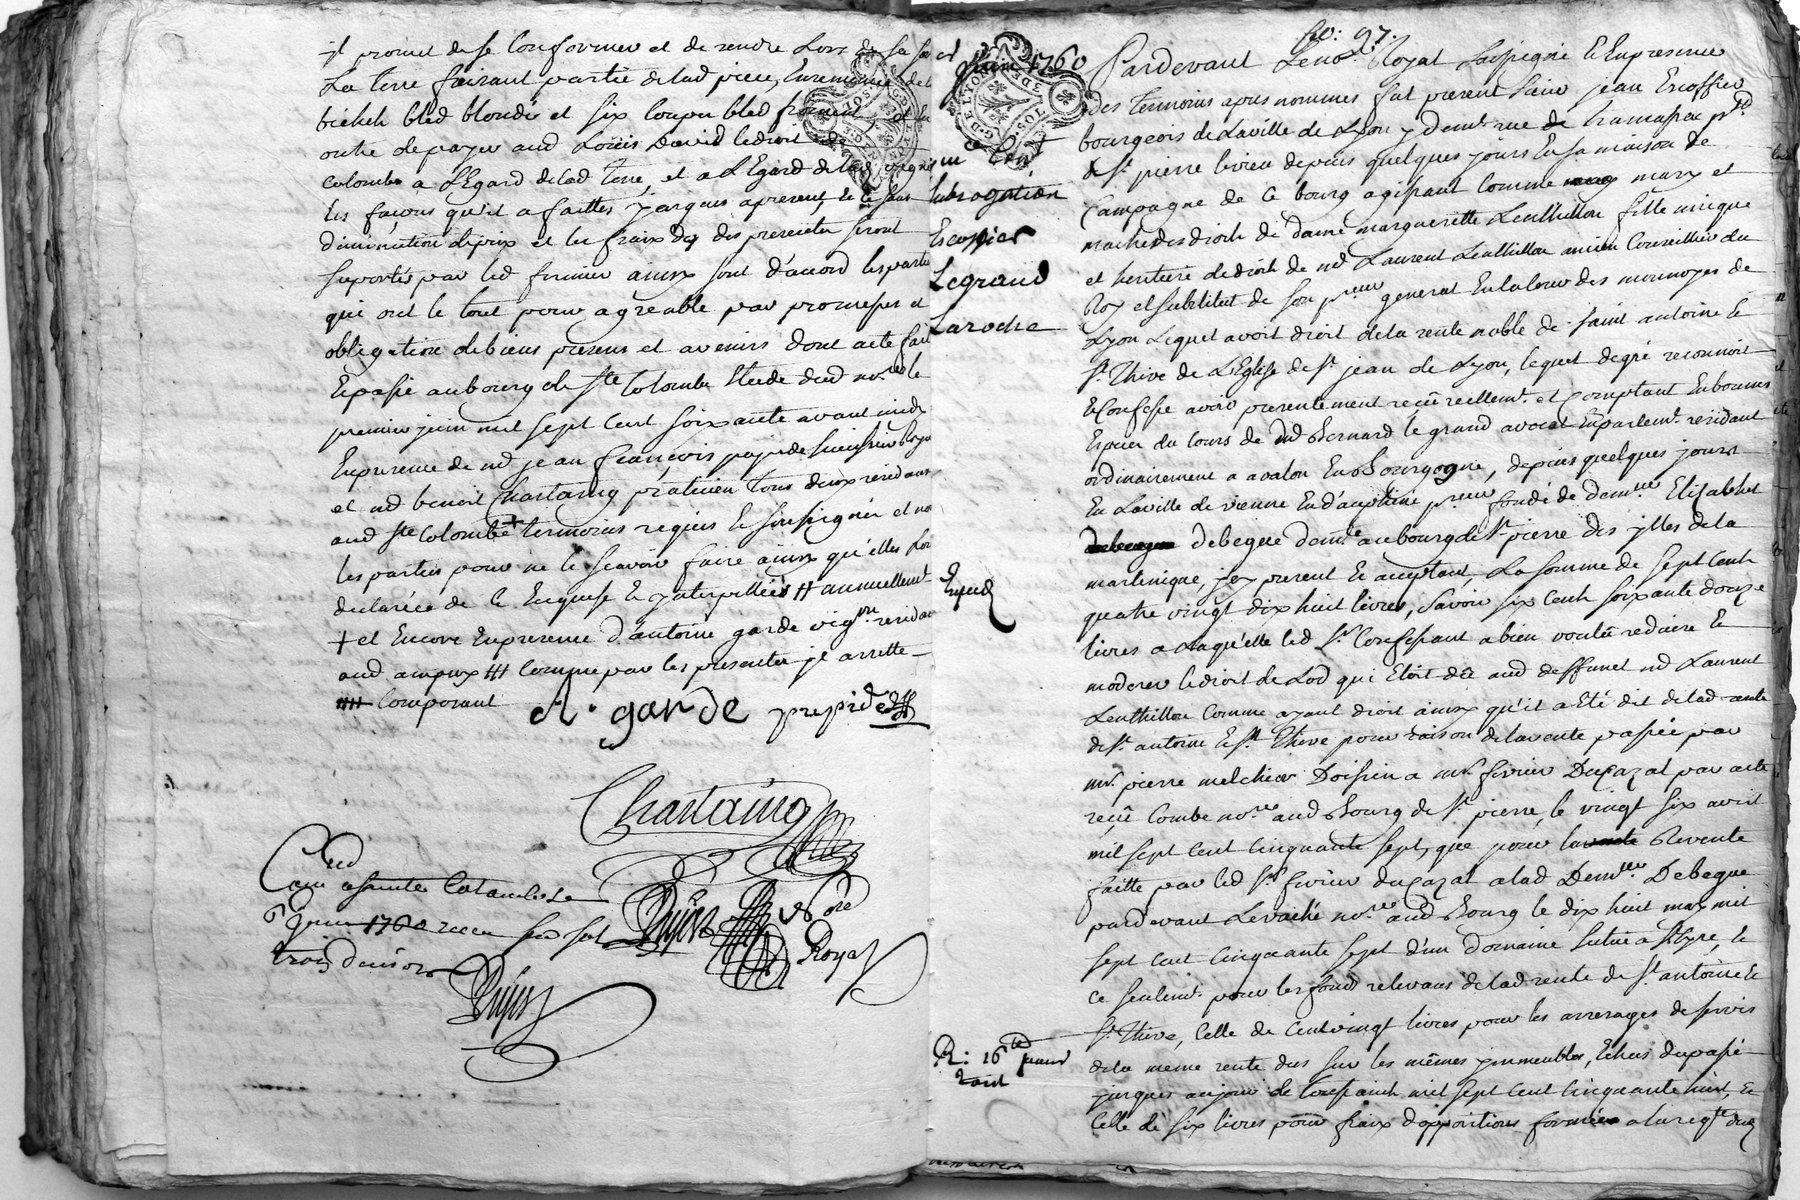 il promet de se Conformer et de rendre Lors de sa
La terre faisant partie de lad piece, Ensemencée de
bichets bled blondé et six Coupes bled froment, et
outre de payer aud Louis David le droit de
Colombe a L'Egard de lad terre, et a L'Egard de lad vigne
les façons qu'il a faittes jusques apresent, Et ce sans
diminution de prix et les frais des presentes seront
suportés par led fermier ainsy sont d'accord les parties
qui ont le tout pour agreable par promesses et
obligation de biens presens et avenirs dont acte fait
Et passé au bourg de Ste Colombe Etude dud nore le
premier juin mil sept cent soixante avant midy
En presence de md jean françois
et md benoit Chastaing praticien tous deux residans
aud ste Colombe + temoins requis Et soussignés et non
les parties pour ne le scavoir faire ainsy qu'elles l'ont
declarées de ce Enquises Et jnterpellées # annuellemt
+ et Encore En presence d'antoine garde vigon residant
aud ampuy ## Comme par les presentes jl arrette
### Composant
A. garde
Chastaing
Dujast Nore Royal
Con led
a sainte Colombe le
6 juin 1760 recu six sol
trois deniers
Dujast
juin 1760
subrogation
Escoffier
Legrand
Laroche
Exped
R: 16
fo: 97.
Pardevant Le nore Royal soussigné Et En presence
des temoins apres nommés fut present sieur jean Escoffier
bourgeois de La ville de Lyon y demt rue de tramassac psse
de St pierre le vieu depuis quelques jours En sa maison de
Campagne de ce bourg agissant Comme mary et
maitre des droits de dame margueritte Lenthillon fille unique
et heritiere de droit de md Laurent Lenthillon ancien Conseillier du
Roy et substitut de son preur general En la Cour des monnoyes de
Lyon Lequel avoit droit de la rente noble de saint antoine Et
St Thive de L'Eglise de St jean de Lyon, lequel de gré reconnoit
Et Confesse avoir presentement reçu reellemt et Comptant En bonnes
Especes du Cours de Md Bernard le grand avocat En parlemt residant
ordinairement a avalon En Bourgogne, depuis quelques jours
En La ville de vienne En d'auphiné preur fondé de demlle Elisabhet
Debegue demte au bourg de St pierre des jsles de la
martinique, jcy present Et acceptant, La somme de sept Cents
quatre vingt dix huit livres, Savoir six Cents soixante douze
livres a Laquelle led Sr Confessant a bien voulu reduire Et
moderer le droit de Lod qui Etoit dû aud deffunt md Laurent
Lenthillon Comme ayant droit ainsy qu'il a Eté dit de lad rente
de St antoine Et St Thive pour raison de la vente passée par
mr pierre melchior Doissin a mr fevrier Ducazal par acte
reçû Combe nore aud Bourg de St pierre le vingt six avril
mil sept cent cinquante sept, que pour la Revente
faitte par led Sr fevrier ducazal a lad Demlle Debegue
pardevant Levaché nore aud Bourg le dix huit may mil
sept cent cinquante sept d'un Domaine situé a St Cyre, Et
ce seulemt pour les fonds relevans de lad rente de St antoine Et
St Thive, Celle de Cent vingt livres pour les arrerages de servis
de la meme rente dus sur les mêmes jmmeubles, Echus du passé
jusques au jour de toussaint mil sept cent cinquante huit, Et
Celle de six livres pour fraix d'oppositions formées a la reqte dud